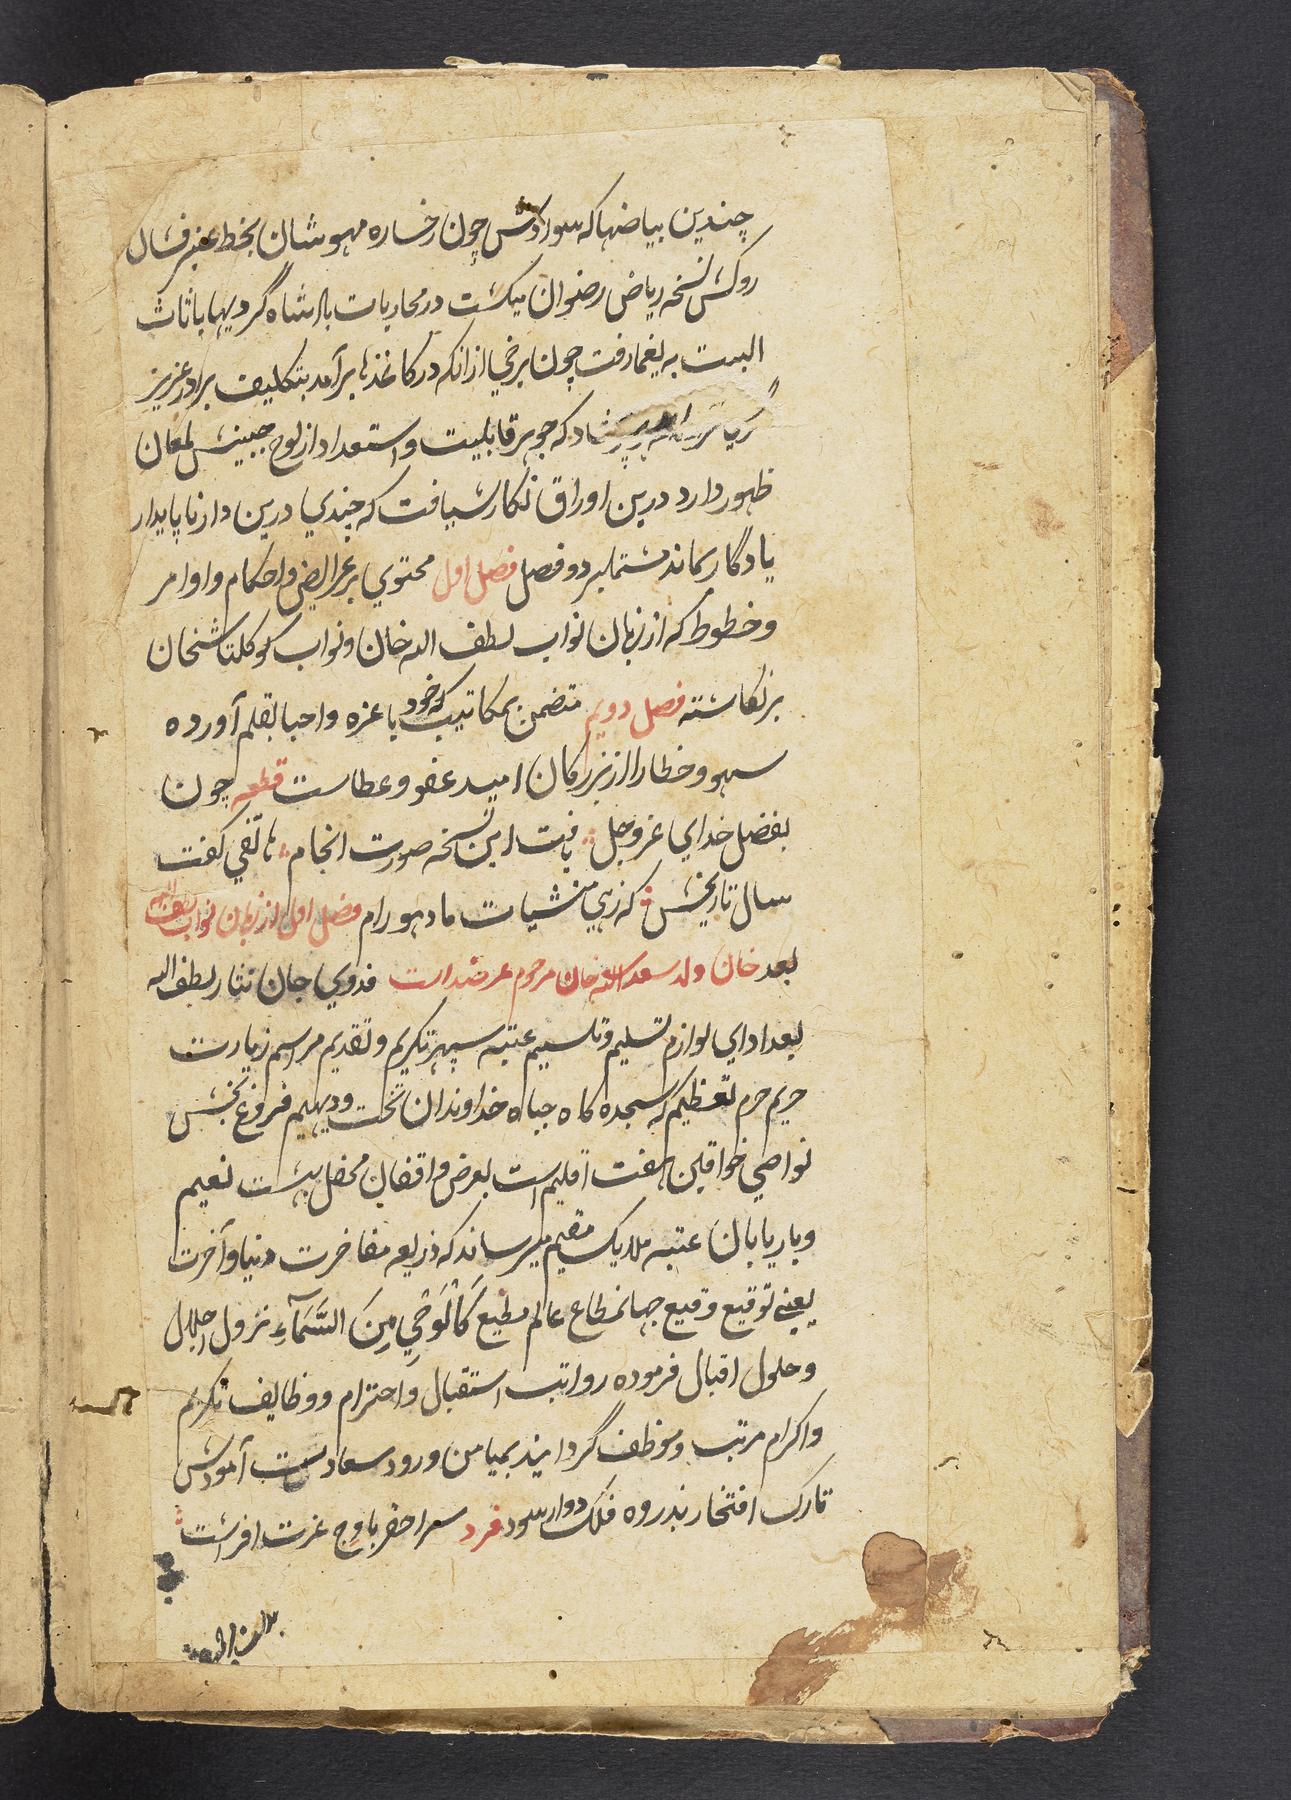 چندین بیاضها که سوادش چون رخساره مهوشان بخط عنبر فشان
روکش نسخه ریاض رضوان میگشت در محاربات بالاشاه گردیها باثاث
البیت به یغما رفت چون برخی از انکه در کاغذها برآمد بتکلیف برادر عزیز
پرشاد که جوهر قابلیت و استعداد از لوح جبینش لمعان
ظهور دارد درین اوراق نگارش یافت که چندی درین دار ناپایدار
یادگار بماند مشتملبر دو فصل فصل اول محتوی بر عرایض و احکام و اوامر
و خطوط که از زبان نواب لطف الله خان و نواب کوکلتاشخان
برنگاشته فصل دویم متضمن بمکاتیب که خود باعزه و احبا بقلم آورده
سهو و خطا را از بزرگان امید عفو و عطاست قطعه چون
بفضل خدای عز و جل یافت این نسخه صورت انجام هاتفی گفت
سال تاریخش که زهی منشیات مادهورام فصل اول از زبان نواب لطف الله
بعد خان ولد سعد الله خان مرحوم عرضداشت فدوی جان نثار لطف الله
بعد ادای لوازم تسلیم و تلسیم عتبه سپهر تکریم و تقدیم مراسم زیارت
حریم حرم تعظیم که سجده کاه جباه خداوندان تخت و دیهیم فروغ بخش
نواصی خواقین هفت اقلیم است بعرض واقفان محفل بهشت نعیم
و باریابان عتبه ملایک مقیم میرساند که ذریعه مفاخرت دنیا و آخرت
یعنی توقیع وقیع جهانمطاع عالم مطیع کَالْوَحْیِ مِنَ السَّمَآءِ نزول اجلال
و حلول اقبال فرموده رواتب استقبال و احترام و وظایف تکریم
و اکرام مرتب و موظف گردانید بمیامن ورود سعادت آمودش
تارک افتخار بذروه فلک دوار سود فرد سر احقر باوج عزت افراشت